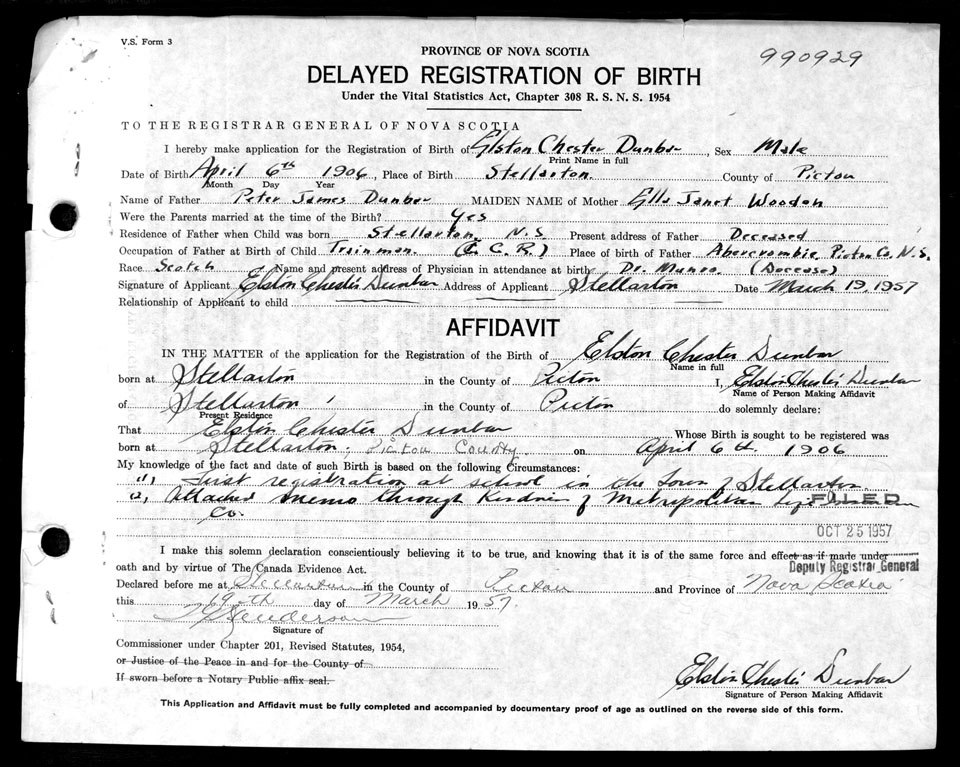 V.S. Form 3
990929
PROVINCE OF NOVA SCOTIA
DELAYED REGISTRATION OF BIRTH
Under the Vital Statistics Act, Chapter 308 R. S. N. S. 1954
TO THE REGISTRAR GENERAL OF NOVA SCOTIA
I hereby make application for the Registration of Birth of Elston Chester Dunbar, Sex Male
Print Name in full
Date of Birth April 6th 1906, Place of Birth Stellarton County of Pictou
Month Day Year
Name of Father Peter James Dunbar MAIDEN NAME of Mother Ella Janet Woodon
Were the Parents married at the time of the Birth? Yes
Residence of Father when Child was born Stellarton N.S Present address of Father Deceased
Occupation of Father at Birth of Child Trainman (C. R.) Place of birth of Father Abercrombie Pictou Co, N.S.
Race Scotch Name and present address of Physician in attendance at birth Dr. Munro (Decease)
Signature of Applicant Elston Chester Dunbar Address of Applicant Stellarton Date March 19, 1957
Relationship of Applicant to child
AFFIDAVIT
IN THE MATTER of the application for the Registration of the Birth of Elston Chester Dunbar
Name in full
born at Stellarton in the County of Pictou I, Elston Chester Dunbar
Name of Person Making Affidavit
of Stellarton in the County of Pictou do solemnly declare:
Present Residence
That Elston Chester Dunbar Whose Birth is sought to be registered was
born at Stellarton, Pictou County on April 6th. 1906
My knowledge of the fact and date of such Birth is based on the following Circumstances:
(1, First registration at school in the Town of Stellarton
(2, Attached memo through Kindness of Metropolitan Life
FILED
Co.
OCT 25 1957
I make this solemn declaration conscientiously believing it to be true, and knowing that it is of the same force and effect as if made under
oath and by virtue of The Canada Evidence Act.
Deputy Registrar General
Declared before me at Stellarton in the County of Pictou and Province of Nova Scotia
this 19th day of March 1957.
Henderson
Signature of
Commissioner under Chapter 201, Revised Statutes, 1954,
or Justice of the Peace in and for the County of
If sworn before a Notary Public affix seal.
Elston Chester Dunbar
Signature of Person Making Affidavit
This Application and Affidavit must be fully completed and accompanied by documentary proof of age as outlined on the reverse side of this form.